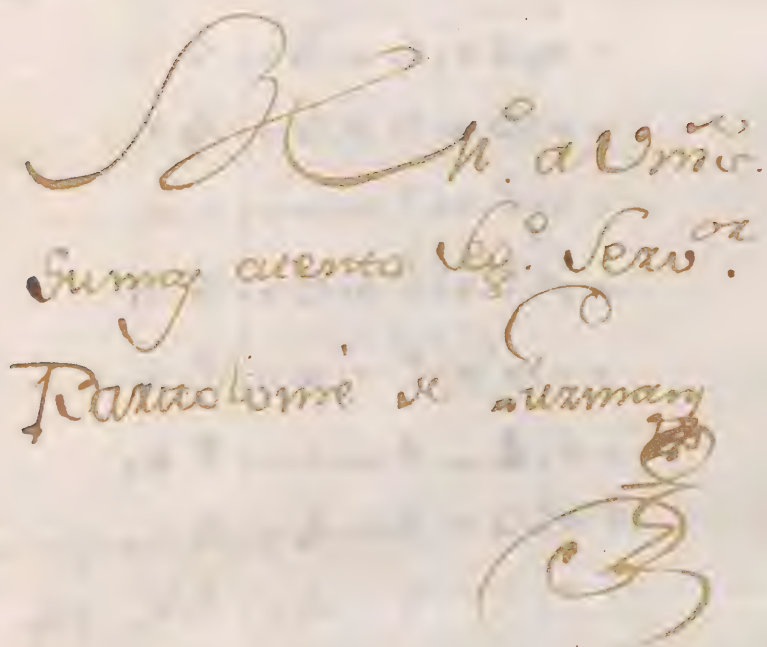 h.º a Vmd.
Su mas atento Seg.º Serv.or
Bartolomé de Guzman